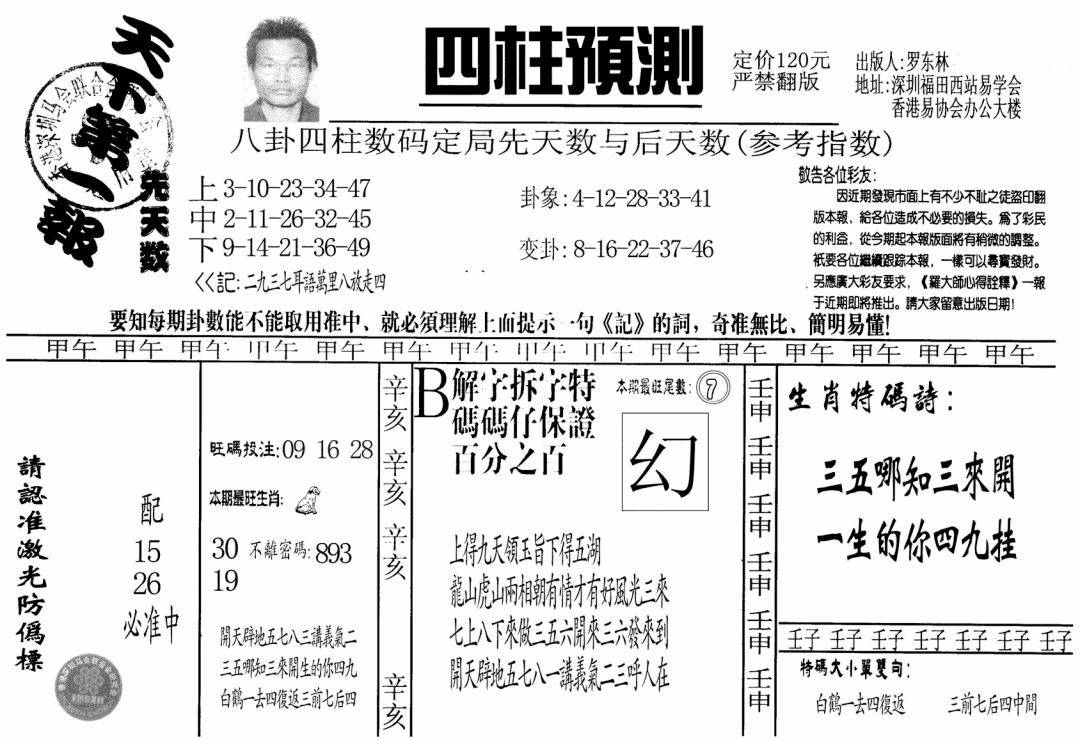 天下第一報
四柱預測
定价120元
严禁翻版
出版人:罗东林
地址:深圳福田西站易学会
香港易协会办公大楼
八卦四柱数码定局先天数与后天数(参考指数)
先天数
上 3-10-23-34-47
中 2-11-26-32-45
下 9-14-21-36-49
卦象:4-12-28-33-41
变卦:8-16-22-37-46
<<記:二九三七耳語萬里八放走四
敬告各位彩友:
因近期發現市面上有不少不耻之徒盜印翻
版本報，給各位造成不必要的損失。爲了彩民
的利益，從今期起本報版面將有稍微的調整。
衹要各位繼續跟踪本報，一樣可以尋寶發財。
另應廣大彩友要求，《羅大師心得詮釋》一報
于近期即將推出。請大家留意出版日期!
要知每期卦數能不能取用准中、就必須理解上面提示一句《記》的詞，奇准無比、簡明易懂!
甲午 甲午 甲午 甲午 甲午 甲午 甲午 甲午 甲午 甲午 甲午 甲午 甲午 甲午 甲午
請認准激光防僞標
配
15
26
必准中
旺碼投注:09 16 28
本期最旺生肖:
30 不離密碼:893
19
開天辟地五七八三講義氣二
三五哪知三來開生的你四九
白鶴一去四復返三前七后四
辛亥
辛亥
辛亥
辛亥
B
解字拆字特
碼碼仔保證
百分之百
本期最旺尾數:7
幻
上得九天領玉旨下得五湖
龍山虎山兩相朝有情才有好風光三來
七上八下來做三五六開來三六發來到
開天辟地五七八一講義氣二三呼人在
壬申
壬申
壬申
壬申
壬申
壬申
生肖特碼詩:
三五哪知三來開
一生的你四九挂
壬子 壬子 壬子 壬子 壬子 壬子 壬子
特碼大小單雙句:
白鶴一去四復返 三前七后四中間